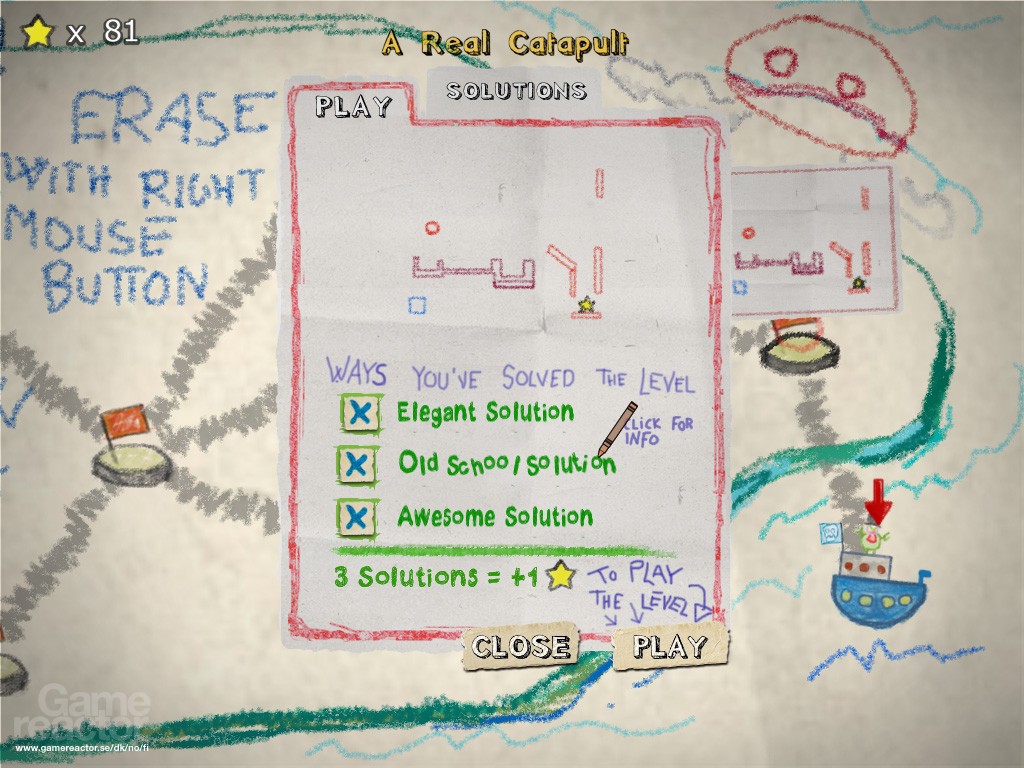 x 81
A Real Catapult
PLAY
SOLUTIONS
ERASE
WITH RIGHT
MOUSE
BUTTON
WAYS YOU'VE SOLVED THE LEVEL
Elegant Solution
CLICK FOR
INFO
Old School Solution
Awesome Solution
3 Solutions = +1
TO PLAY
THE LEVEL
CLOSE
PLAY
Game
reactor
www.gamereactor.se/dk/no/fi